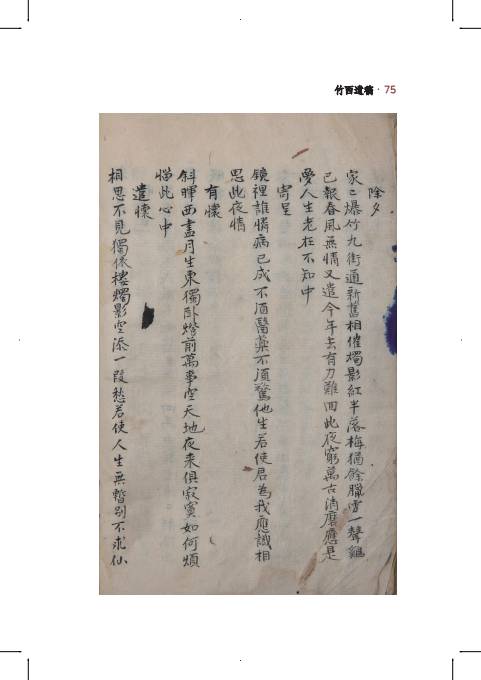 竹西遺稿 · 75
除夕
家〻爆竹九街通新舊相催燭影紅半落梅猶餘臘雪一聲鷄
已報春風無情又遣今年去有力難回此夜窮萬古消磨應是
夢人生老在不知中
寄呈
鏡裡誰憐病已成不須醫藥不須驚他生若使君為我應識相
思此夜情
有懷
斜暉西盡月生東獨臥燈前萬事空天地夜来俱寂寞如何煩
惱此心中
遣懷
相思不見獨依樓燭影空添一段愁若使人生無暫別不求仙